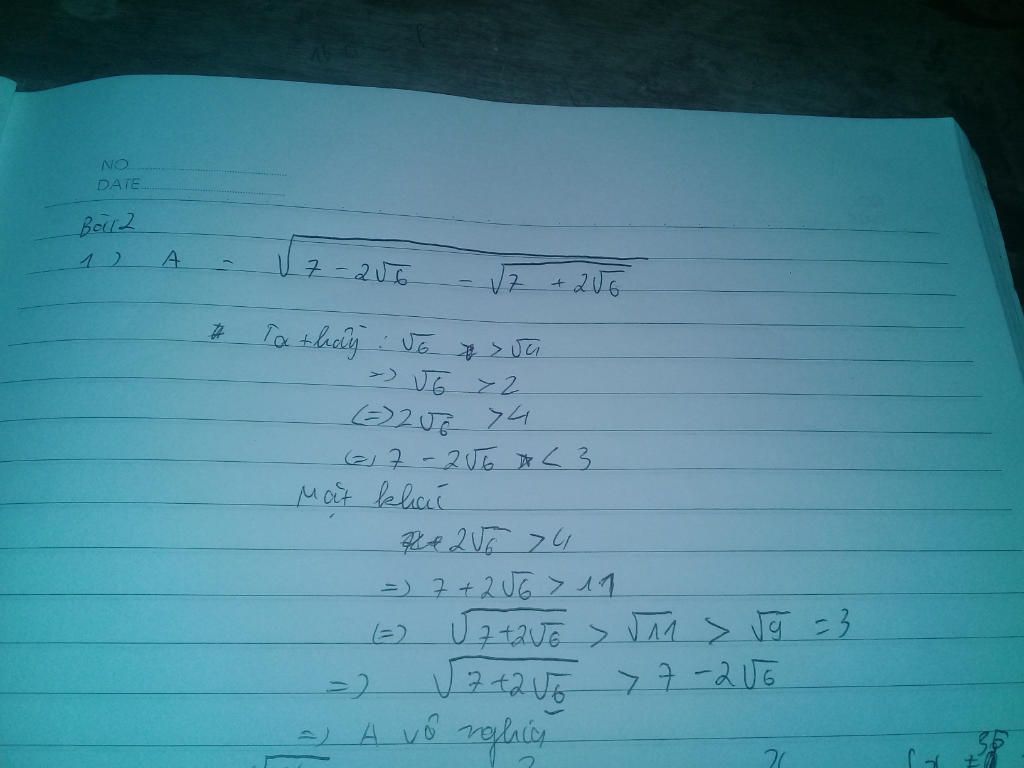 NO
DATE
Bài 2
1) A = √(7 - 2√6 - √(7 + 2√6))
Ta thấy: √6 > √4
=> √6 > 2
<=> 2√6 > 4
<=> 7 - 2√6 < 3
Mặt khác
2√6 > 4
=> 7 + 2√6 > 11
<=> √(7+2√6) > √11 > √9 = 3
=> √(7+2√6) > 7 - 2√6
=> A vô nghĩa